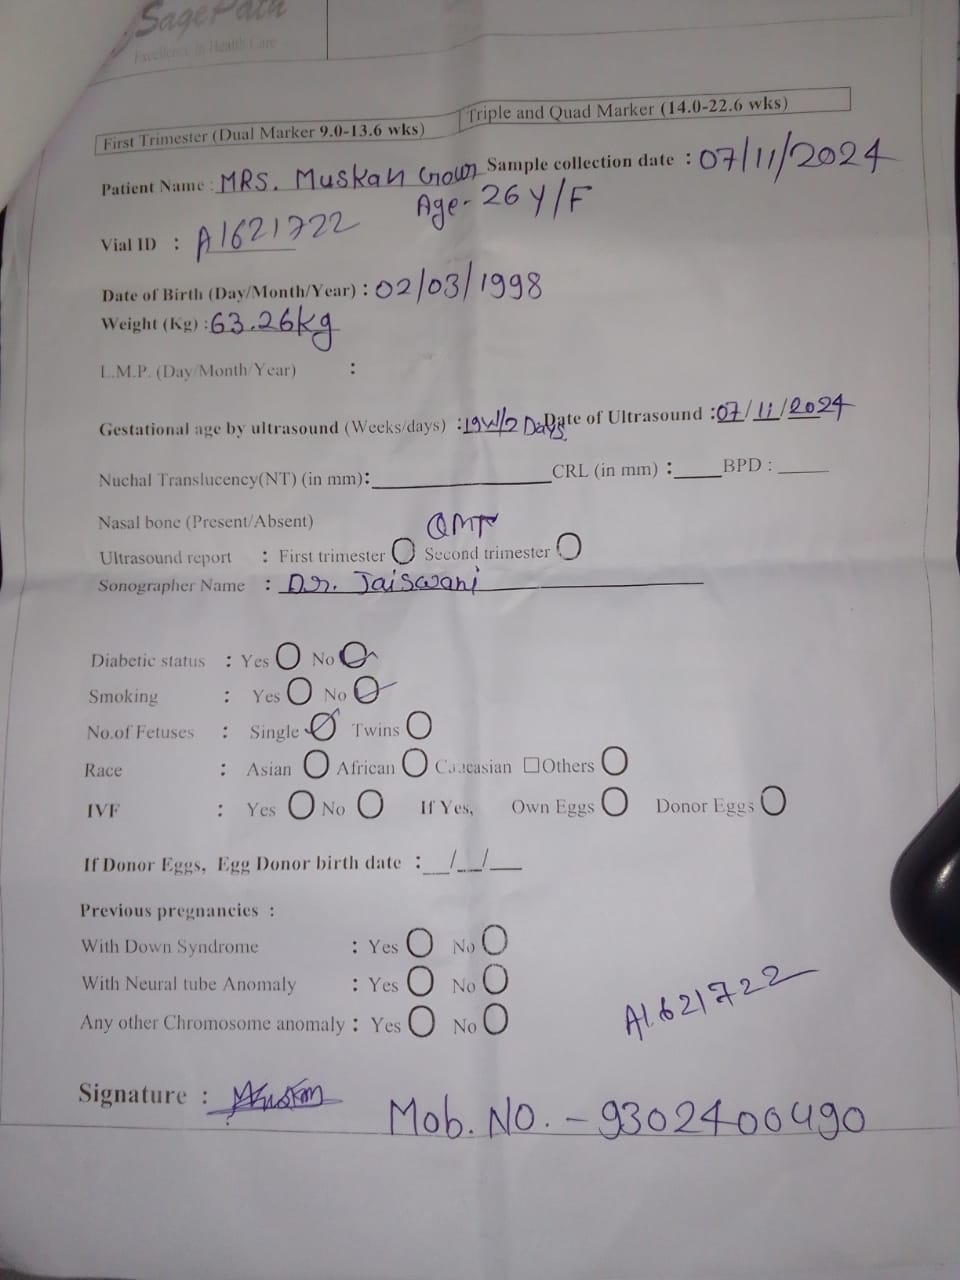 SagePath
Excellence In Health Care
First Trimester (Dual Marker 9.0-13.6 wks) Triple and Quad Marker (14.0-22.6 wks)
Patient Name : MRS. Muskan Sample collection date : 07/11/2024
Age- 26 Y/F
Vial ID : A1621722
Date of Birth (Day/Month/Year) : 02/03/1998
Weight (Kg) : 63.26kg
L.M.P. (Day/Month/Year) :
Gestational age by ultrasound (Weeks/days) : 19W/2 Days Date of Ultrasound : 07/11/2024
Nuchal Translucency(NT) (in mm): CRL (in mm) : BPD :
Nasal bone (Present/Absent)
Ultrasound report : First trimester Second trimester
Sonographer Name : Dr. Jaiswani
Diabetic status : Yes No
Smoking : Yes No
No.of Fetuses : Single Twins
Race : Asian African Caucasian Others
IVF : Yes No If Yes, Own Eggs Donor Eggs
If Donor Eggs, Egg Donor birth date : __/__/__
Previous pregnancies :
With Down Syndrome : Yes No
With Neural tube Anomaly : Yes No
Any other Chromosome anomaly : Yes No
A1621722
Signature : Muskan
Mob. NO. - 9302400490